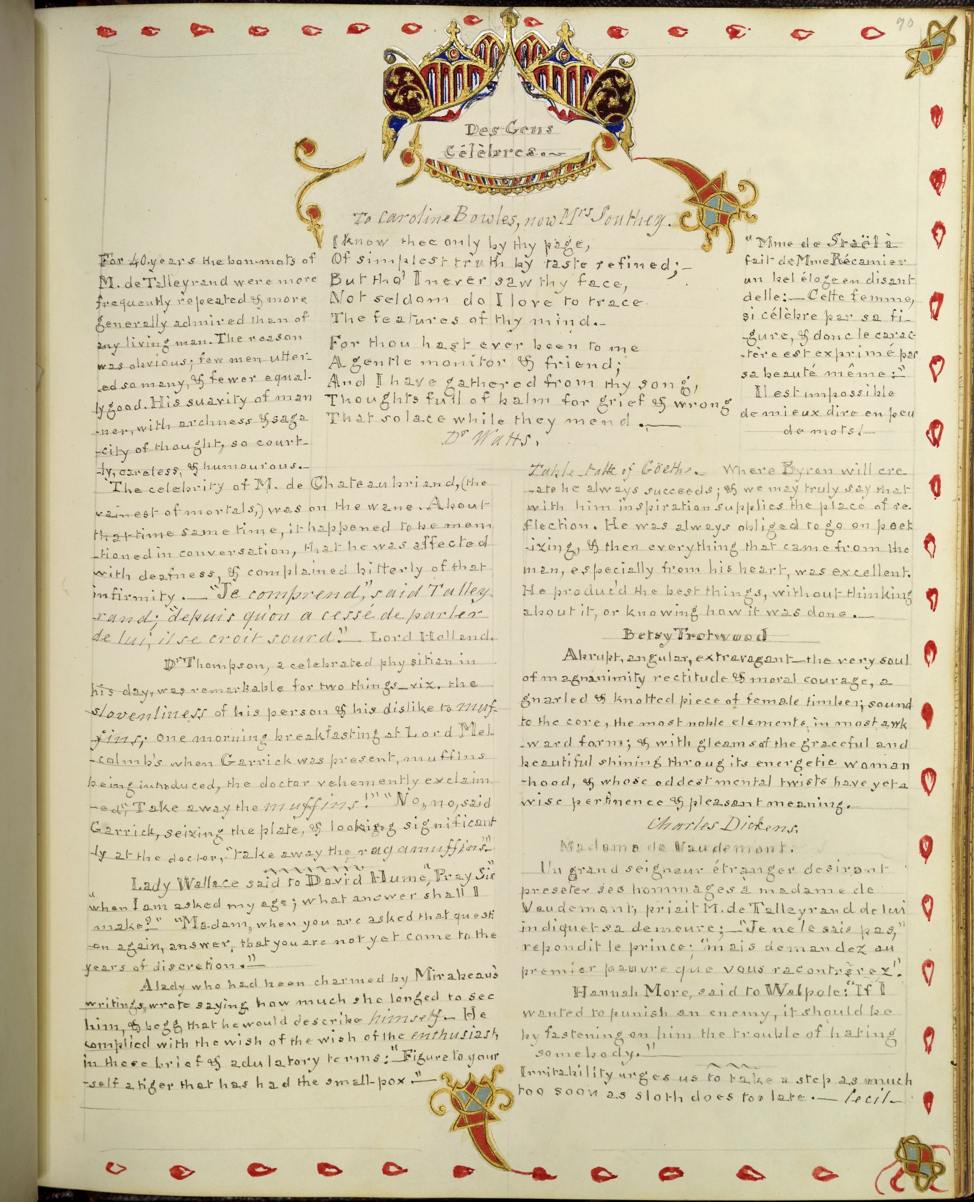 90
Des Gens
Célèbres.~
To Caroline Bowles, now Mrs Southey.
I know thee only by thy page,
Of simplest truth by taste refined;–
But tho' I never saw thy face,
Not seldom do I love to trace
The features of thy mind.–
For thou hast ever been to me
A gentle monitor & friend;
And I have gathered from thy song,
Thoughts full of balm for grief & wrong
That solace while they mend.—
Dr Watts.
For 40 years the bon-mots of
M. de Talleyrand were more
frequently repeated & more
generally admired than of
any living man. The reason
was obvious; few men utter-
-ed so many, & fewer equal-
ly good. His suavity of man
-ner, with archness & saga
-city of thought, so court-
-ly, careless, & humourous.–
"Mme de Staël à
fait de Mme Récamier
un bel éloge en disant
d'elle:– Cette femme,
si célèbre par sa fi-
gure, & donc le carac-
-tère est exprimé par
sa beauté même:"
Il est impossible
de mieux dire en peu
de mots!–
The celebrity of M. de Chateaubriand, (the
vainest of mortals,) was on the wane. About
that time same time, it happened to be men
-tioned in conversation, that he was affected
with deafness, & complained bitterly of that
infirmity.–"Je comprend," said Talley-
rand; "depuis qu'on a cessé de parler
de lui, il se croit sourd." Lord Holland.
Dr Thompson, a celebrated physitian in
his day, was remarkable for two things–viz. the
slovenliness of his person & his dislike to muf-
fins; one morning breakfasting at Lord Mel
-comb's when Garrick was present, muffins
being introduced, the doctor vehemently exclaim
-ed, "Take away the muffins!" "No, no, said
Garrick, seizing the plate, & looking significant
-ly at the doctor, "take away the ragamuffins."
Lady Wallace said to David Hume, "Pray Sir
"when I am asked my age; what answer shall I
make?" "Madam, when you are asked that questi
-on again, answer, that you are not yet came to the
years of discretion."–
A lady who had been charmed by Mirabeau's
writings, wrote saying how much she longed to see
him, & begg that he would describe himself.– He
complied with the wish of the wish of the enthusiast
in these brief & adulatory terms: "Figure to your
-self a tiger that has had the small-pox."–
Table-talk of Goethe.– Where Byron will cre
-ate he always succeeds; & we may truly say that
with him inspiration supplies the place of re-
flection. He was always obliged to go on poet
-izing, & then everything that came from the
man, especially from his heart, was excellent.
He produc'd the best things, without thinking
about it, or knowing how it was done.–
Betsy Trotwood
Abrupt, angular, extravagant–the very soul
of magnanimity rectitude & moral courage, a
gnarled & knotted piece of female timber; sound
to the core, the most noble elements, in most awk
-ward forms; & with gleams of the graceful and
beautiful shining throug its energetic woman
-hood, & whose oddest mental twists have yet a
wise pertinence & pleasant meaning.
Charles Dickens.
Madame de Vaudemont.
Un grand seigneur étranger desirant
preseter ses hommages a madame de
Vaudemont, priait M. de Talleyrand de lui
indiquet sa demeure;–"Je ne le sais pas,"
repondit le prince; "mais demandez au
premier pauvre que vous racontrèrez".
Hannah More, said to Walpole: "If I
wanted to punish an enemy, it should be
by fastening on him the trouble of hating
somebody."
Irritability urges us to take a step as much
too soon as sloth does too late.– Cecil–